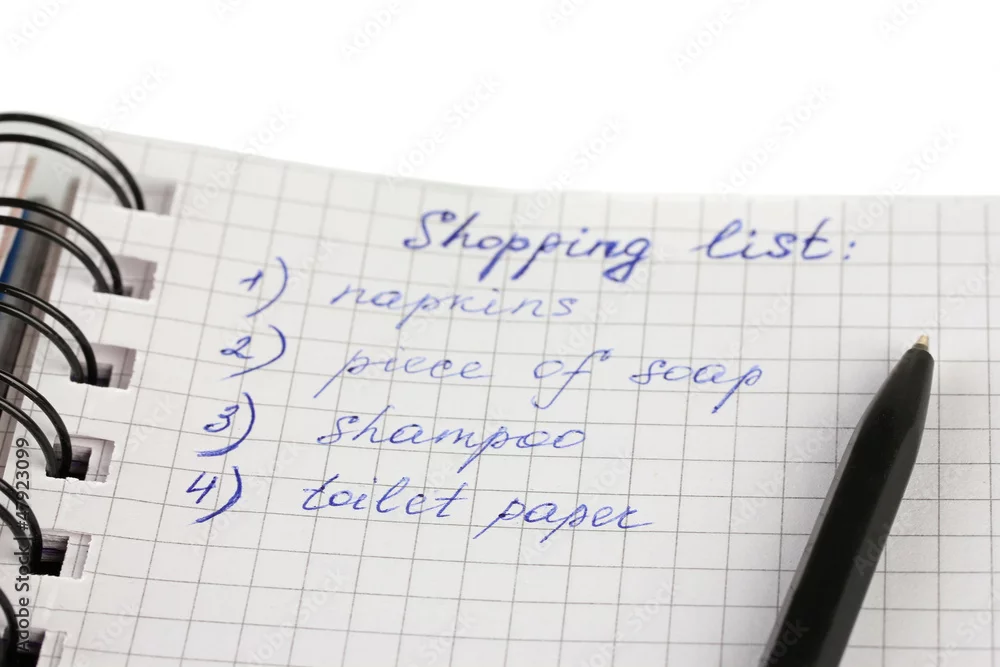 Shopping list:
1) napkins
2) piece of soap
3) shampoo
4) toilet paper
Adobe Stock | #47923099